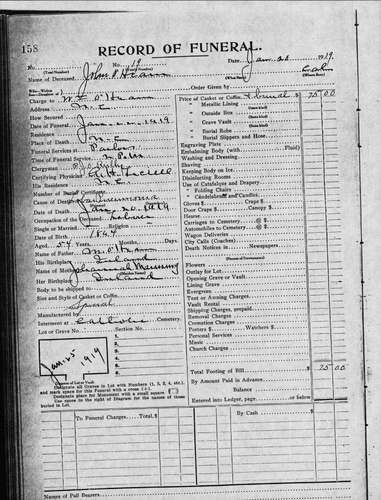 158
RECORD OF FUNERAL.
No. 19
Date Jan. 20 1919
(Total Number) (Yearly Number)
Name of Deceased John P. O'Hearn
Order Given by
Charge to O'Hearn
Address N. E.
How Secured
Date of Funeral 1919
Residence
Place of Death N. E.
Funeral Services at Parlors
Time of Funeral Service
Clergyman
Certifying Physician
His Residence N. E.
Number of Burial Certificate
Cause of Death Pneumonia
Date of Death Jan. 20 1919
Occupation of the Deceased Laborer
Single or Married
Religion
Date of Birth 1864
Aged 54 Years, Months, Days.
Name of Father M. O'Hearn
His Birthplace Ireland
Name of Mother
Her Birthplace Ireland
Body to be shipped to
Size and Style of Casket or Coffin
Manufactured by
Interment at Catholic Cemetery.
Lot or Grave No. Section No.
1.
2.
3.
4.
5.
6.
Jan. 25 1919
Diagram of Lot or Vault
Designate all Graves in Lot with Numbers (1, 2, 3, 4, etc.) and mark space for this Funeral with a cross (+).
Designate place for Monument with a small square
Use space to the right of Diagram for the names of those buried in Lot.
Price of Casket or Coffin + burial $ 75 00
" Metallic Lining
" Outside Box
" Grave Vault
" Burial Robe
" Burial Slippers and Hose
Engraving Plate
Embalming Body (with Fluid)
Washing and Dressing
Shaving
Keeping Body on Ice
Disinfecting Rooms
Use of Catafalque and Drapery
" Folding Chairs
" Candelabrum and Candles
Gloves $ Crape $
Door Crape $ Canopy $
Hearse
Carriages to Cemetery @ $
Automobiles to Cemetery @ $
Wagon Deliveries
City Calls (Coaches)
Death Notices in Newspapers
Flowers
Outlay for Lot
Opening Grave or Vault
Lining Grave
Evergreen
Tent or Awning Charges
Vault Rental
Shipping Charges, prepaid
Removal Charges
Cremation Charges
Porters $ Watchers $
Personal Services
Music
Church Charges
Total Footing of Bill $ 75 00
By Amount Paid in Advance
Balance
Entered into Ledger, page or below $
To Funeral Charges Total, $
By Cash $
Names of Pall Bearers